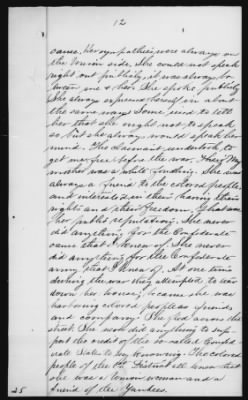 12
cause. Her sympathies were always on
the Union side. She could not speak
right out publicly, it was always be-
tween me & her. She spoke publicly
She always expressed herself in about
the same way. Some used to tell
her that she ought not to speak
so but she always would speak her
mind. The claimant undertook to
get me free before the war. My
mother was a white. She was
always a friend to the colored people
and interested in their having their
rights and their freedom. That was
her public reputation. She never
did anything for the Confederate
cause that I knew of. She never
did anything for the Confederate
army that I knew of. At one time
during the war they attempted to tear
down her house, because she was
harboring colored people as friends
and company. She lived across the
street. She never did anything to sup-
port the credit of the so-called Confed-
erate States to my knowing. The colored
people of the 6th District all knew that
she was a Union woman and a
friend of the Yankees.
25